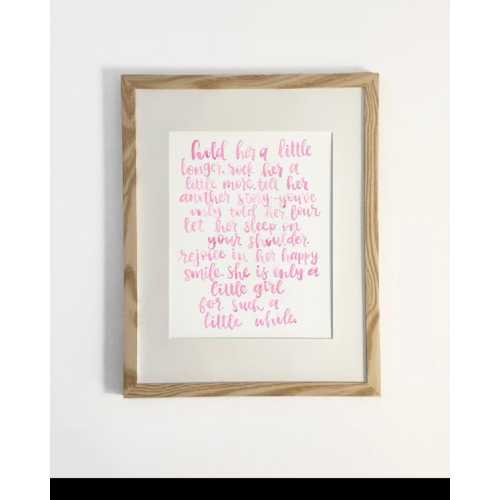 hold her a little
longer, rock her a
little more. tell her
another story--you've
only told her four
let her sleep on
your shoulder.
rejoice in her happy
smile. she is only a
little girl
for such a
little while.